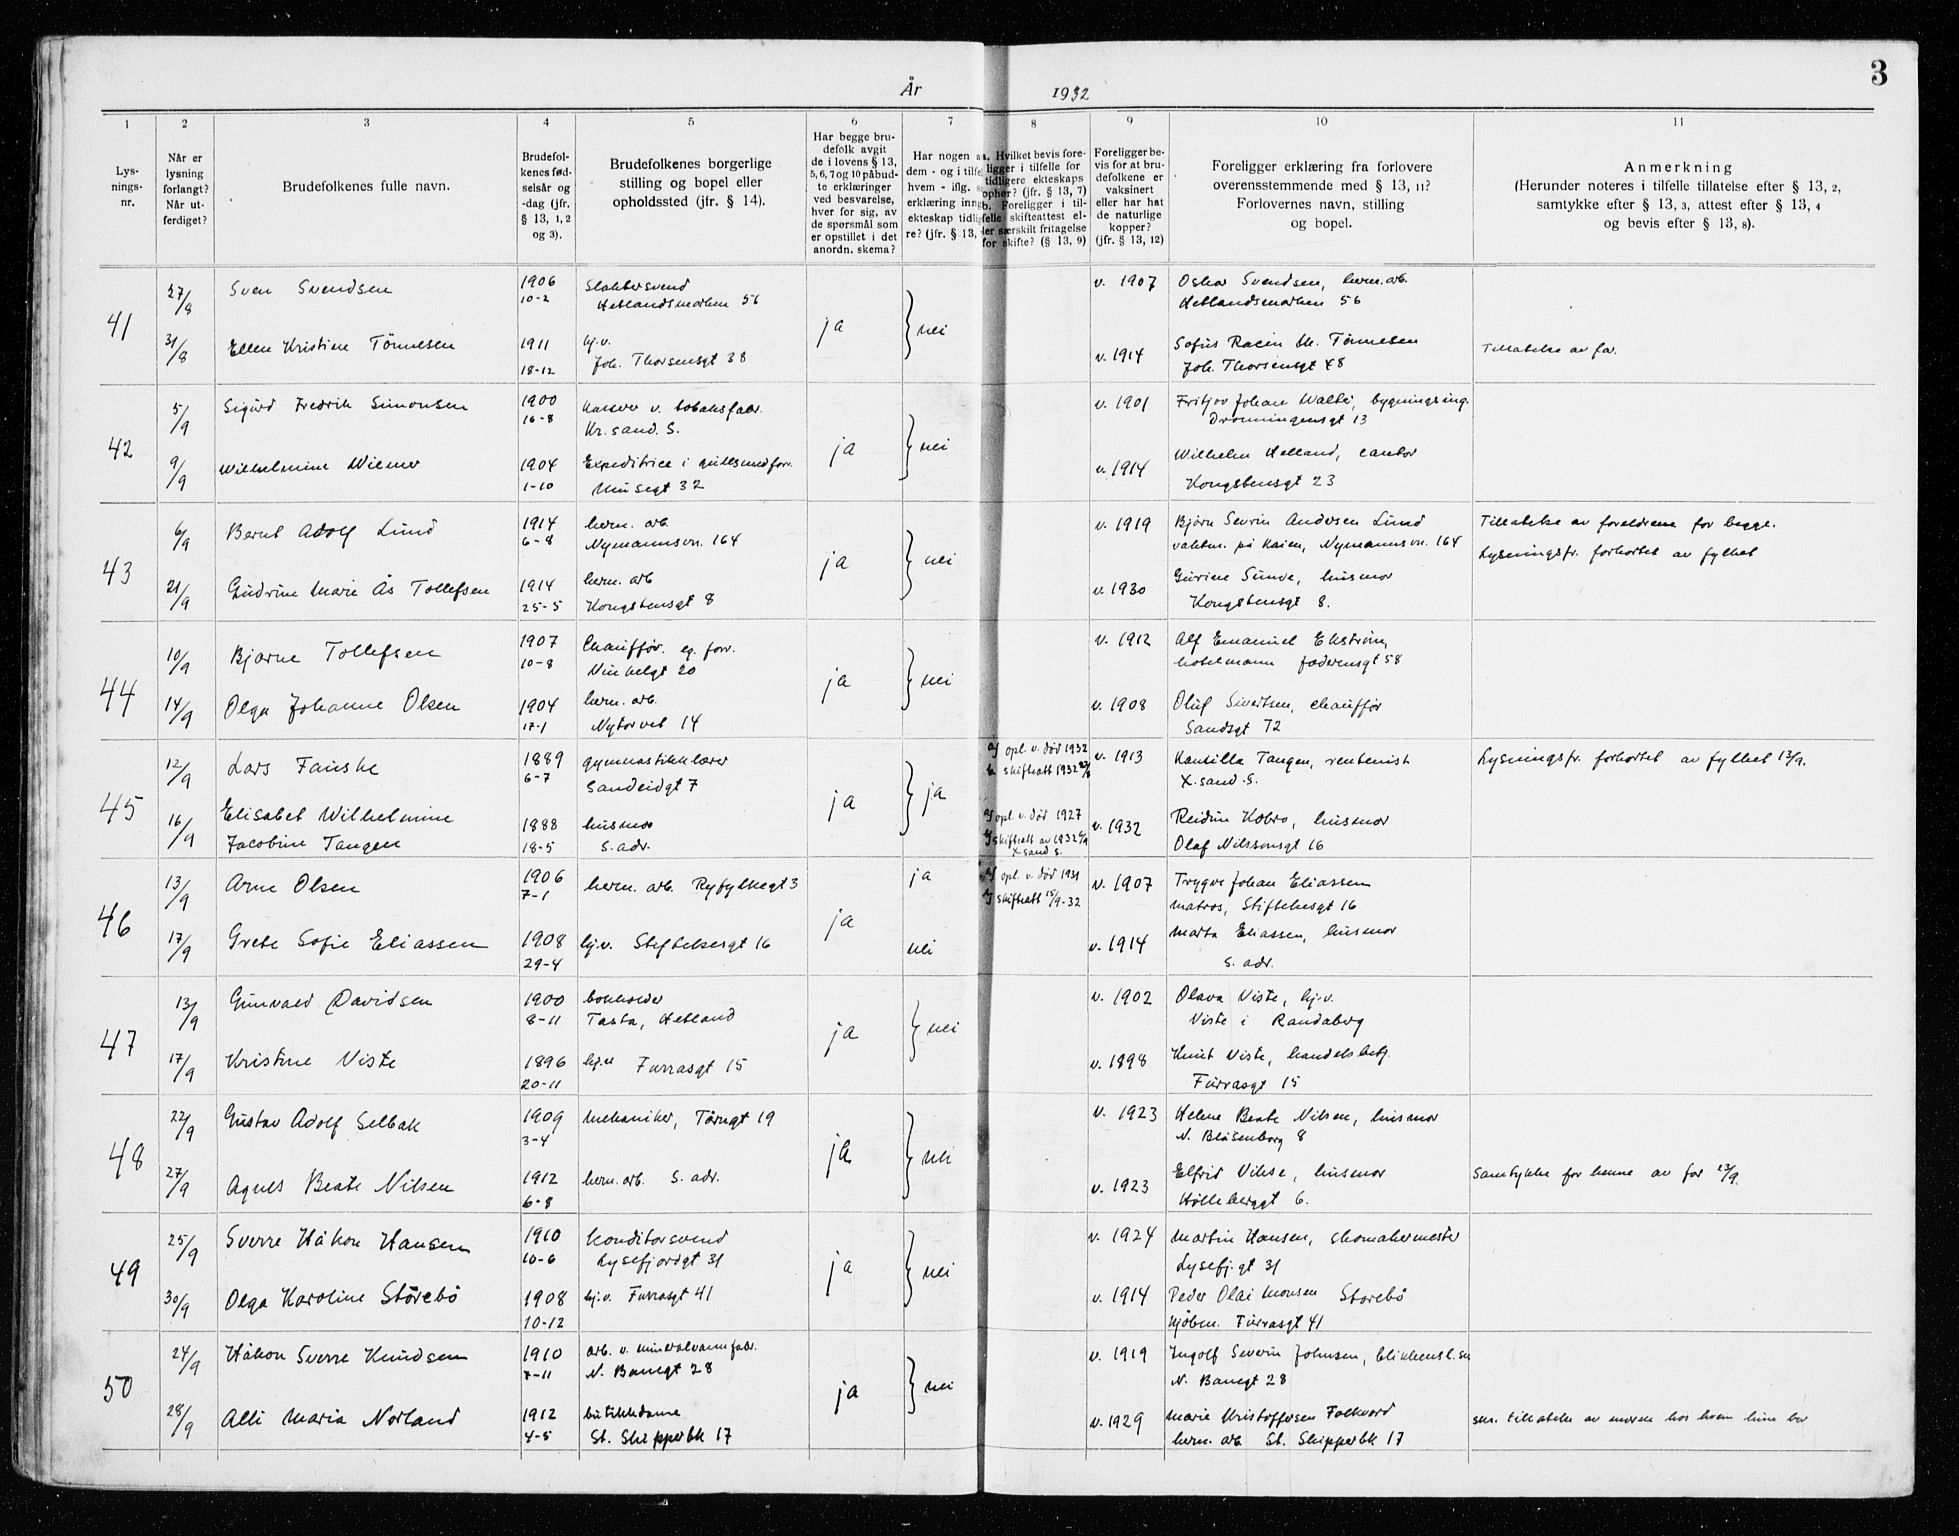 3
År 1932
1 2 3 4 5 6 7 8 9 10 11
Lys-
nings-
nr.
Når er
lysning
forlangt?
Når ut-
ferdiget?
Brudefolkenes fulle navn.
Brudefol-
kenes fød-
selsår og
-dag (jfr.
§ 13, 1, 2
og 3).
Brudefolkenes borgerlige
stilling og bopel eller
opholdssted (jfr. § 14).
Har begge bru-
defolk avgit
de i lovens § 13,
5, 6, 7 og 10 påbud-
te erklæringer
ved besvarelse,
hver for sig, av
de spørsmål som
er opstillet i det
anordn. skema?
Har nogen a
dem - og i tilfe
hvem - iflg. s
erklæring inng
ekteskap tidlig
re? (jfr. § 13,
a. Hvilket bevis fore-
ligger i tilfelle for
tidligere ekteskaps
ophør? (jfr. § 13, 7)
b. Foreligger i til-
felle skifteattest el-
ler særskilt fritagelse
for skifte? (§ 13, 9)
Foreligger be-
vis for at bru-
defolkene er
vaksinert
eller har hat
de naturlige
kopper?
(jfr. § 13, 12)
Foreligger erklæring fra forlovere
overensstemmende med § 13, 11?
Forlovernes navn, stilling
og bopel.
Anmerkning
(Herunder noteres i tilfelle tillatelse efter § 13, 2,
samtykke efter § 13, 3, attest efter § 13, 4
og bevis efter § 13, 8).
41
27/8 Sven Svendsen 1906 Slaktersvend v. 1907 Oskar Svendsen, herm. arb.
10-2 Hetlandsmarken 56 Hetlandsmarken 56
ja nei
31/8 Ellen Kristine Tønnesen 1911 hj.v. v. 1914 Sofus Racin M. Tønnesen Tillatelse av far.
18-12 Joh. Thorsensgt 38 Joh. Thorsensgt 48
42
5/9 Sigurd Fredrik Simonsen 1900 v. tobaksfabr. v. 1901 Fritjov Johan bygningsing.
16-8 Kr.sand. S. Dronningensgt 13
ja nei
9/9 Wilhelmine Wiemer 1904 Expeditrice i gullsmedforr. v. 1914 Wilhelm Helland, cantor
1-10 Musegt 32 Kongstensgt 23
43
6/9 Bernt Adolf Lund 1914 herm. arb. v. 1919 Bjørn Sevrin Andersen Lund Tillatelse av foreldrene for begge.
6-8 Nymannsvn. 164 vaktm. på kaien, Nymannsvn. 164 Lysningsfr. forkortet av fylket
ja nei
21/9 Gudrun Marie Ås Tollefsen 1914 herm. arb v. 1930 Guriene Sunde, husmor
25-5 Kongstensgt 8 Kongstensgt 8.
44
10/9 Bjarne Tollefsen 1907 Chauffør. eg. forr. v. 1912 Alf Emanuel Ekstrøm,
10-8 Vinkelgt 20 hotelmann Jæderensgt 58
ja nei
14/9 Olga Johanne Olsen 1904 herm. arb. v. 1908 Oluf Sivertsen, chauffør
17-1 Nytorvet 14 Sandsgt 72
45
12/9 Lars Fauske 1889 gymnastikklærer a/ opl. v. død 1932 v. 1913 Kansilla Tangen, rentenist Lysningsfr. forkortet av fylket 13/9.
6-7 Sandeidgt 7 skifteatt 1932 X.sand. S.
ja ja
16/9 Elisabet Wilhelmine 1888 husmor a/ opl. v. død 1927 v. 1932 Reidun Kobro, husmor
Jacobine Tangen 18-5 s. adr. skifteatt av 1932 X.sand S. Olaf Nilssonsgt 16
46
13/9 Arne Olsen 1906 herm. arb. Ryfylkegt 3 ja a/ opl. v. død 1931 v. 1907 Trygve Johan Eliassen
7-1 skifteatt 15/9-32 matros, Stiftelsesgt 16
ja
17/9 Grete Sofie Eliassen 1908 hj.v. Stiftelsesgt 16 nei v. 1914 Marta Eliassen, husmor
29-4 s. adr.
47
13/9 Gunvald Davidsen 1900 bokholder v. 1902 Olava Viste, hj.v.
8-11 Tasta, Hetland Viste i Randaberg
ja nei
17/9 Kristine Viste 1896 hj.v. Furrasgt 15 v. 1898 Knut Viste, handelsbetj.
20-11 Furrasgt 15
48
22/9 Gustav Adolf Selbak 1909 mekaniker, Tårngt 19 v. 1923 Helene Beate Nilsen, husmor
3-4 N. Blåsenborg 8
ja nei
27/9 Agnes Beate Nilsen 1912 herm. arb. s. adr. v. 1923 Elfrid Vikse, husmor Samtykke for henne av far 23/9.
6-8 Hølleberggt 6.
49
25/9 Sverre Håkon Hansen 1910 konditorsvend v. 1924 Martin Hansen, skomakermester
10-6 Lysefjordgt 31 Lysefj.gt 31
ja nei
30/9 Olga Karoline Storebø 1908 hj.v. Furrasgt 41 v. 1914 Peder Olai Monsen Storebø
10-12 kjøbm. Furrasgt 41
50
24/9 Håkon Sverre Knudsen 1910 arb. v. mineralvannfabr. v. 1919 Ingolf Severin Johnsen,
7-11 N. Banegt 28 N. Banegt 28
ja nei
28/9 Alli Maria Norland 1912 butikkdame v. 1929 Marie Kristoffersen Folkvord skr. tillatelse av morens hos hvem hun bor
4-5 St. Skipperbk 17 herm. arb St. Skipperbk 17